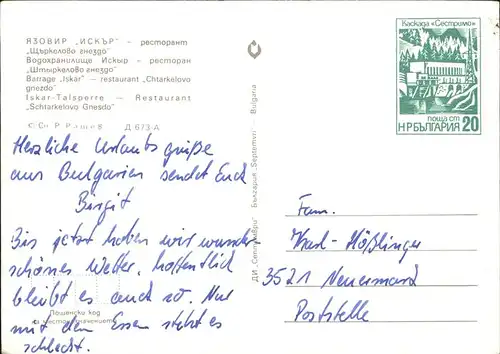 ЯЗОВИР „ИСКЪР" — ресторант
„Щъркелово гнездо"
Водохранилище Искыр — ресторан
„Штыркелово гнездо"
Barrage „Iskar" — restaurant „Chtarkelovo
gnezdo"
Iskar-Talsperre — Restaurant
„Schtarkelovo Gnesdo"
Д 673 А
Herzliche Urlaubsgrüße
aus Bulgarien sendet Euch
Birgit
Bis jetzt haben wir wunder-
schönes Wetter, hoffentlich
bleibt es auch so. Nur
mit dem Essen steht es
schlecht.
Пощенски код
на местоназначението
ДИ „Септември" България „Septemvri" Bulgaria
Каскада „Сестримо"
поща ст
НР БЪЛГАРИЯ 20
Fam.
Karl-Hößlinger
3521
Poststelle